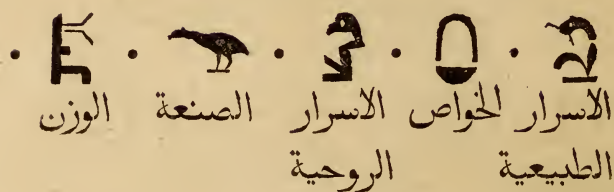 الاسرار الخواص الاسرار الصنعة الوزن
الطبيعية الروحية